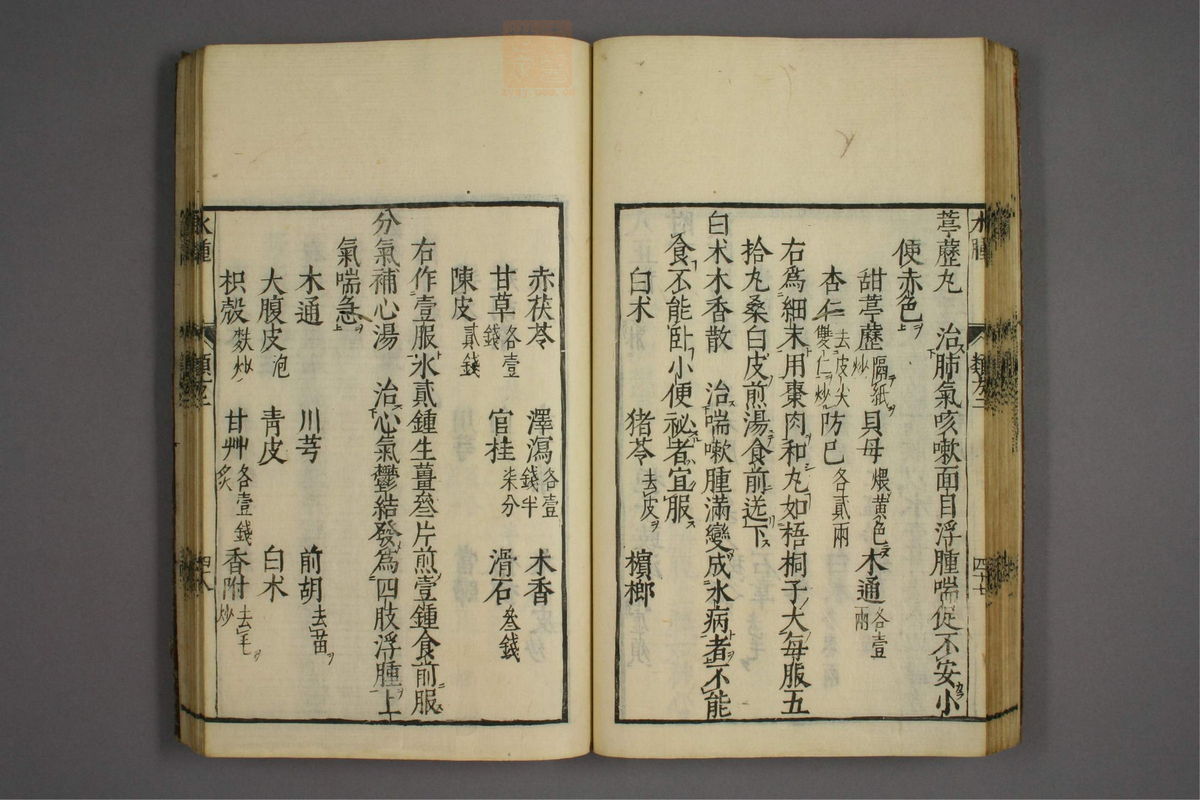 葶藶丸　治肺氣咳嗽面目浮腫喘促不安小
便赤色
甜葶藶隔紙炒　貝母煨黄色　木通各壹兩
杏仁去皮尖雙仁炒　防巳各貳兩
右為細末用棗肉和丸如梧桐子大每服五
拾丸桑白皮煎湯食前送下
白朮木香散　治喘嗽腫滿變成水病者不能
食不能卧小便祕者宜服
白朮　猪苓去皮　檳榔
赤茯苓　澤瀉各壹錢半　木香
甘草各壹錢　官桂柒分　滑石叄錢
陳皮貳錢
右作壹服水貳鍾生薑叄片煎壹鍾食前服
分氣補心湯　治心氣鬱結發為四肢浮腫上
氣喘急
木通　川芎　前胡去苗
大腹皮泡　青皮　白朮
枳殼麩炒　甘艸各壹錢炙　香附去毛炒
水腫　類方二　四十七
水腫　四十八